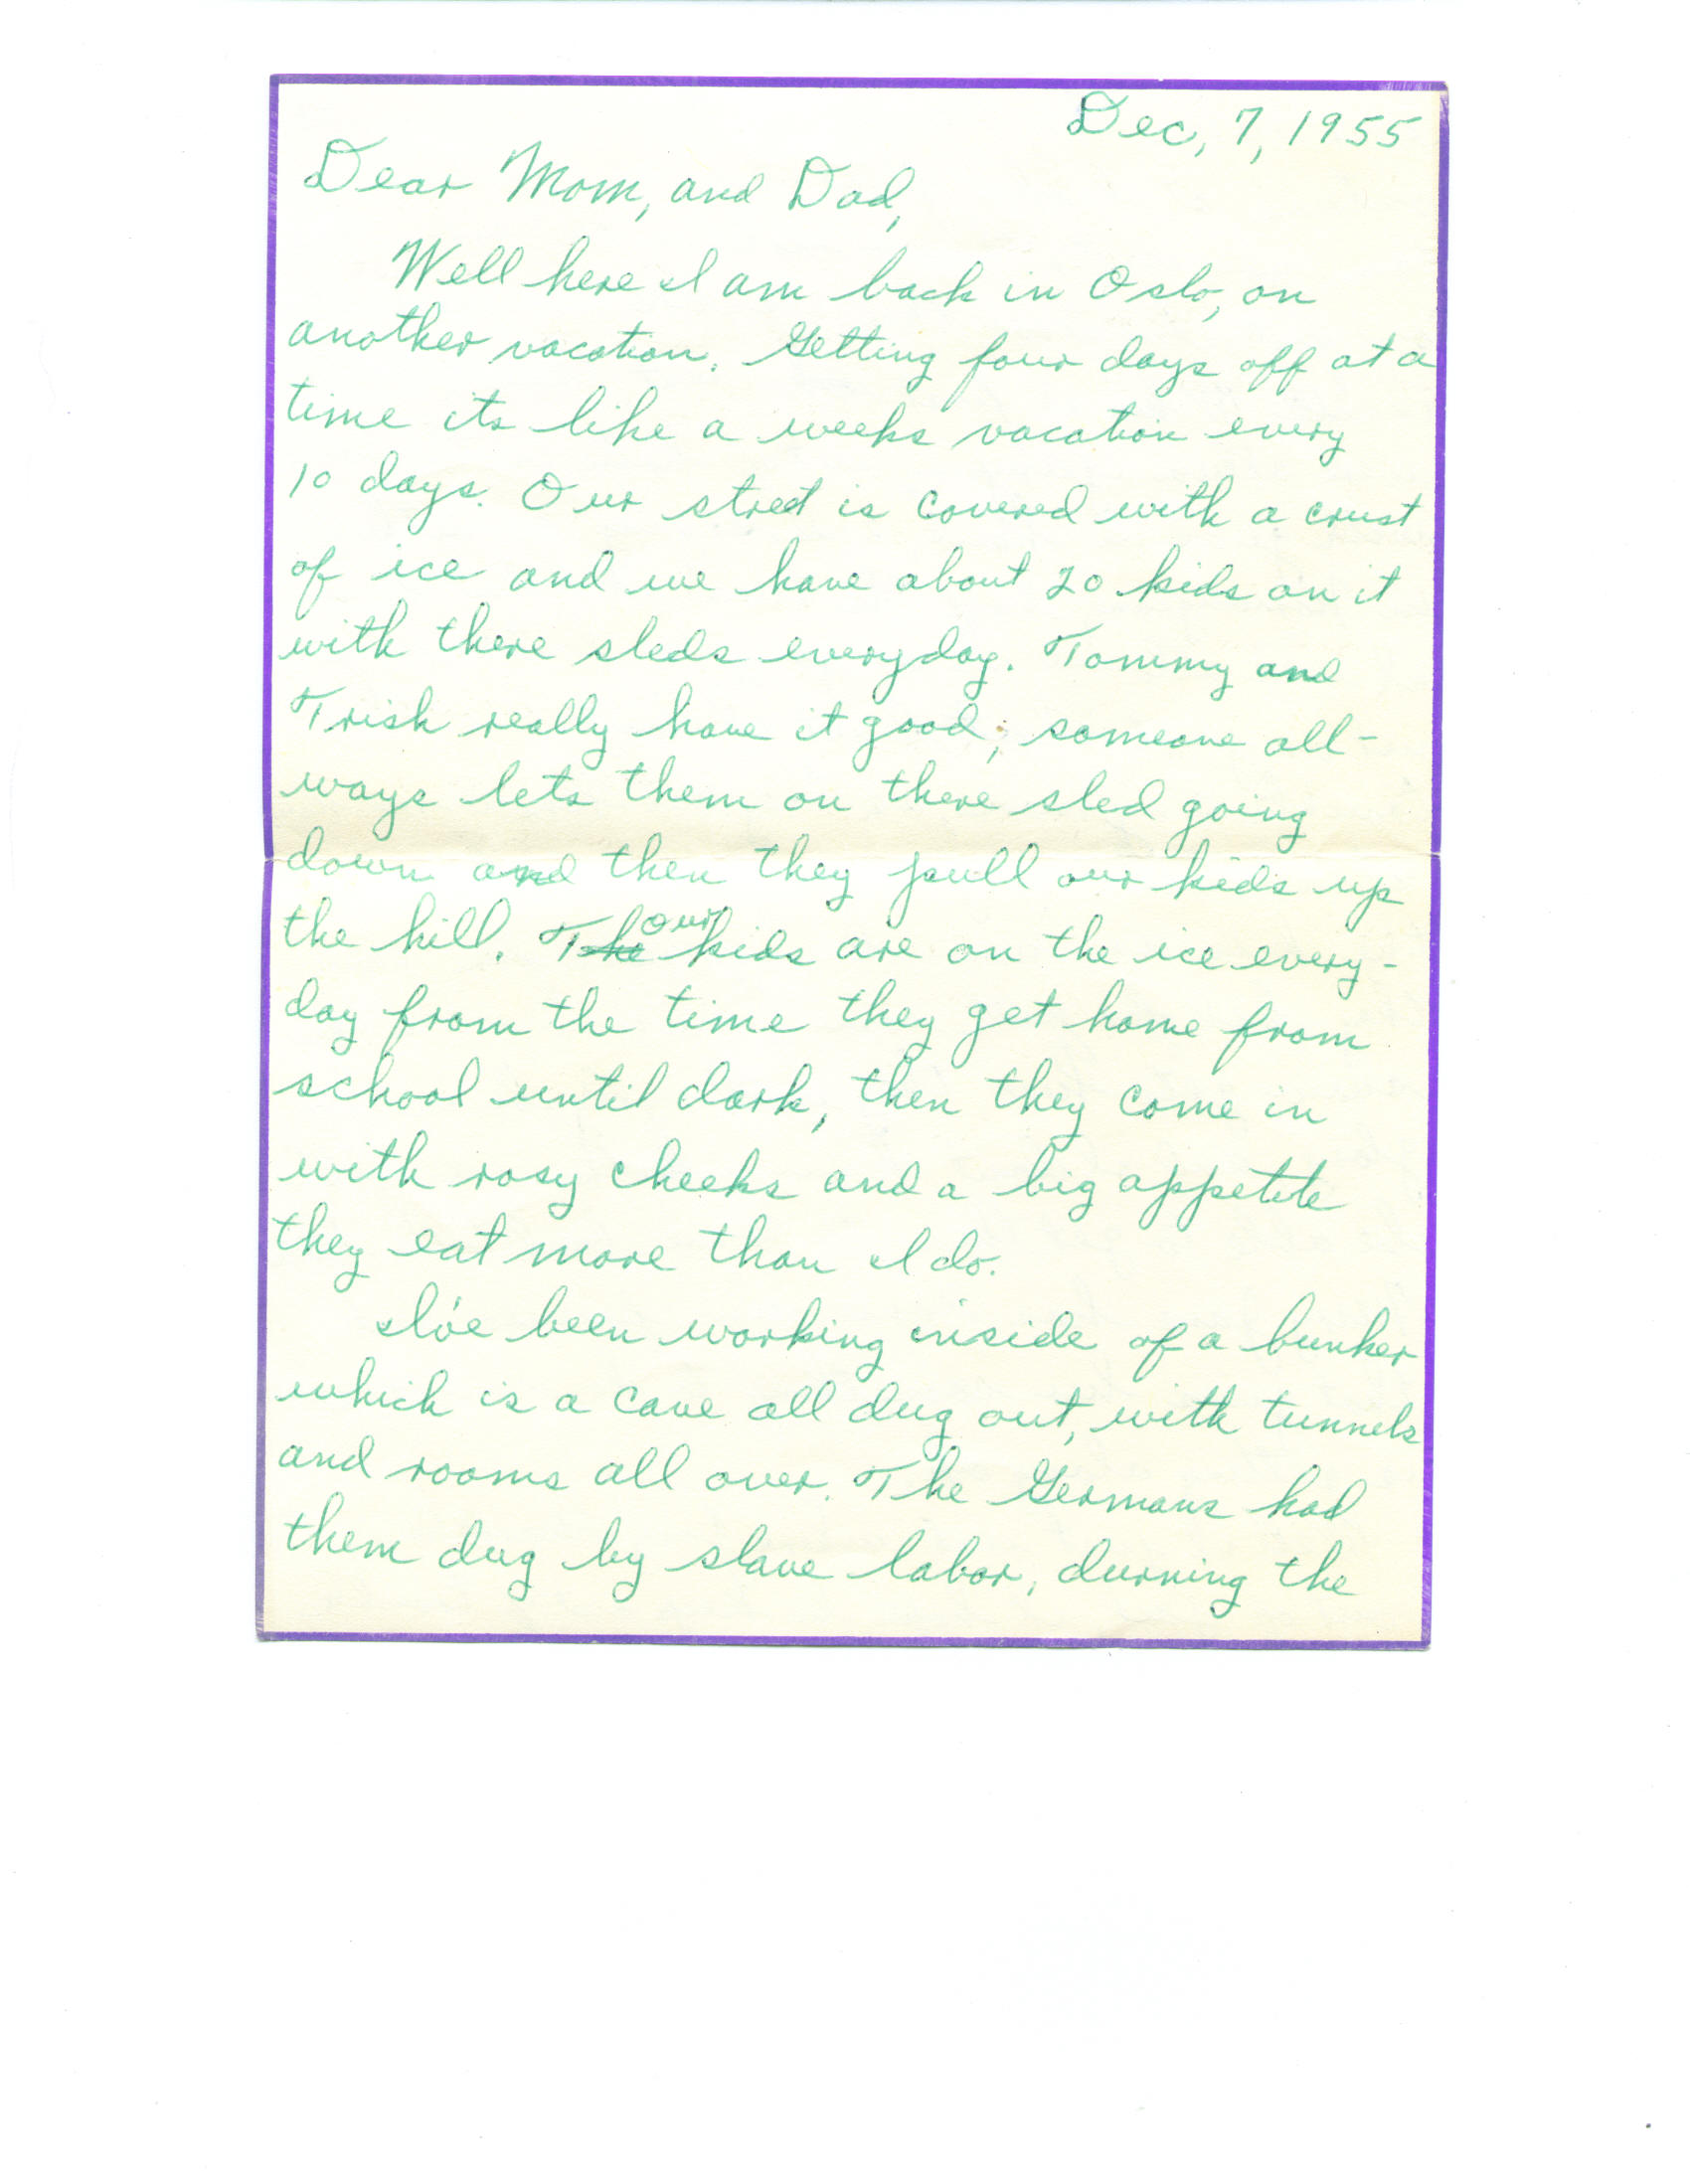 Dec, 7, 1955
Dear Mom, and Dad,
Well here I am back in Oslo, on
another vacation. Getting four days off at a
time its like a weeks vacation every
10 days. Our street is covered with a crust
of ice and we have about 20 kids on it
with there sleds everyday. Tommy and
Trish really have it good, someone all-
ways lets them on there sled going
down and then they pull our kids up
the hill. The our kids are on the ice every-
day from the time they get home from
school until dark, then they come in
with rosy cheeks and a big appetite
they eat more than I do.
I've been working inside of a bunker
which is a cave all dug out, with tunnels
and rooms all over. The Germans had
them dug by slave labor, durning the